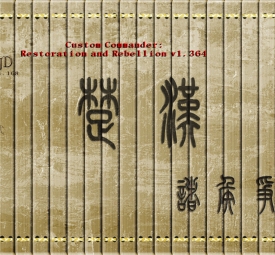 Custom Commander:
Restoration and Rebellion v1.364
楚 漢
諸 侯 爭